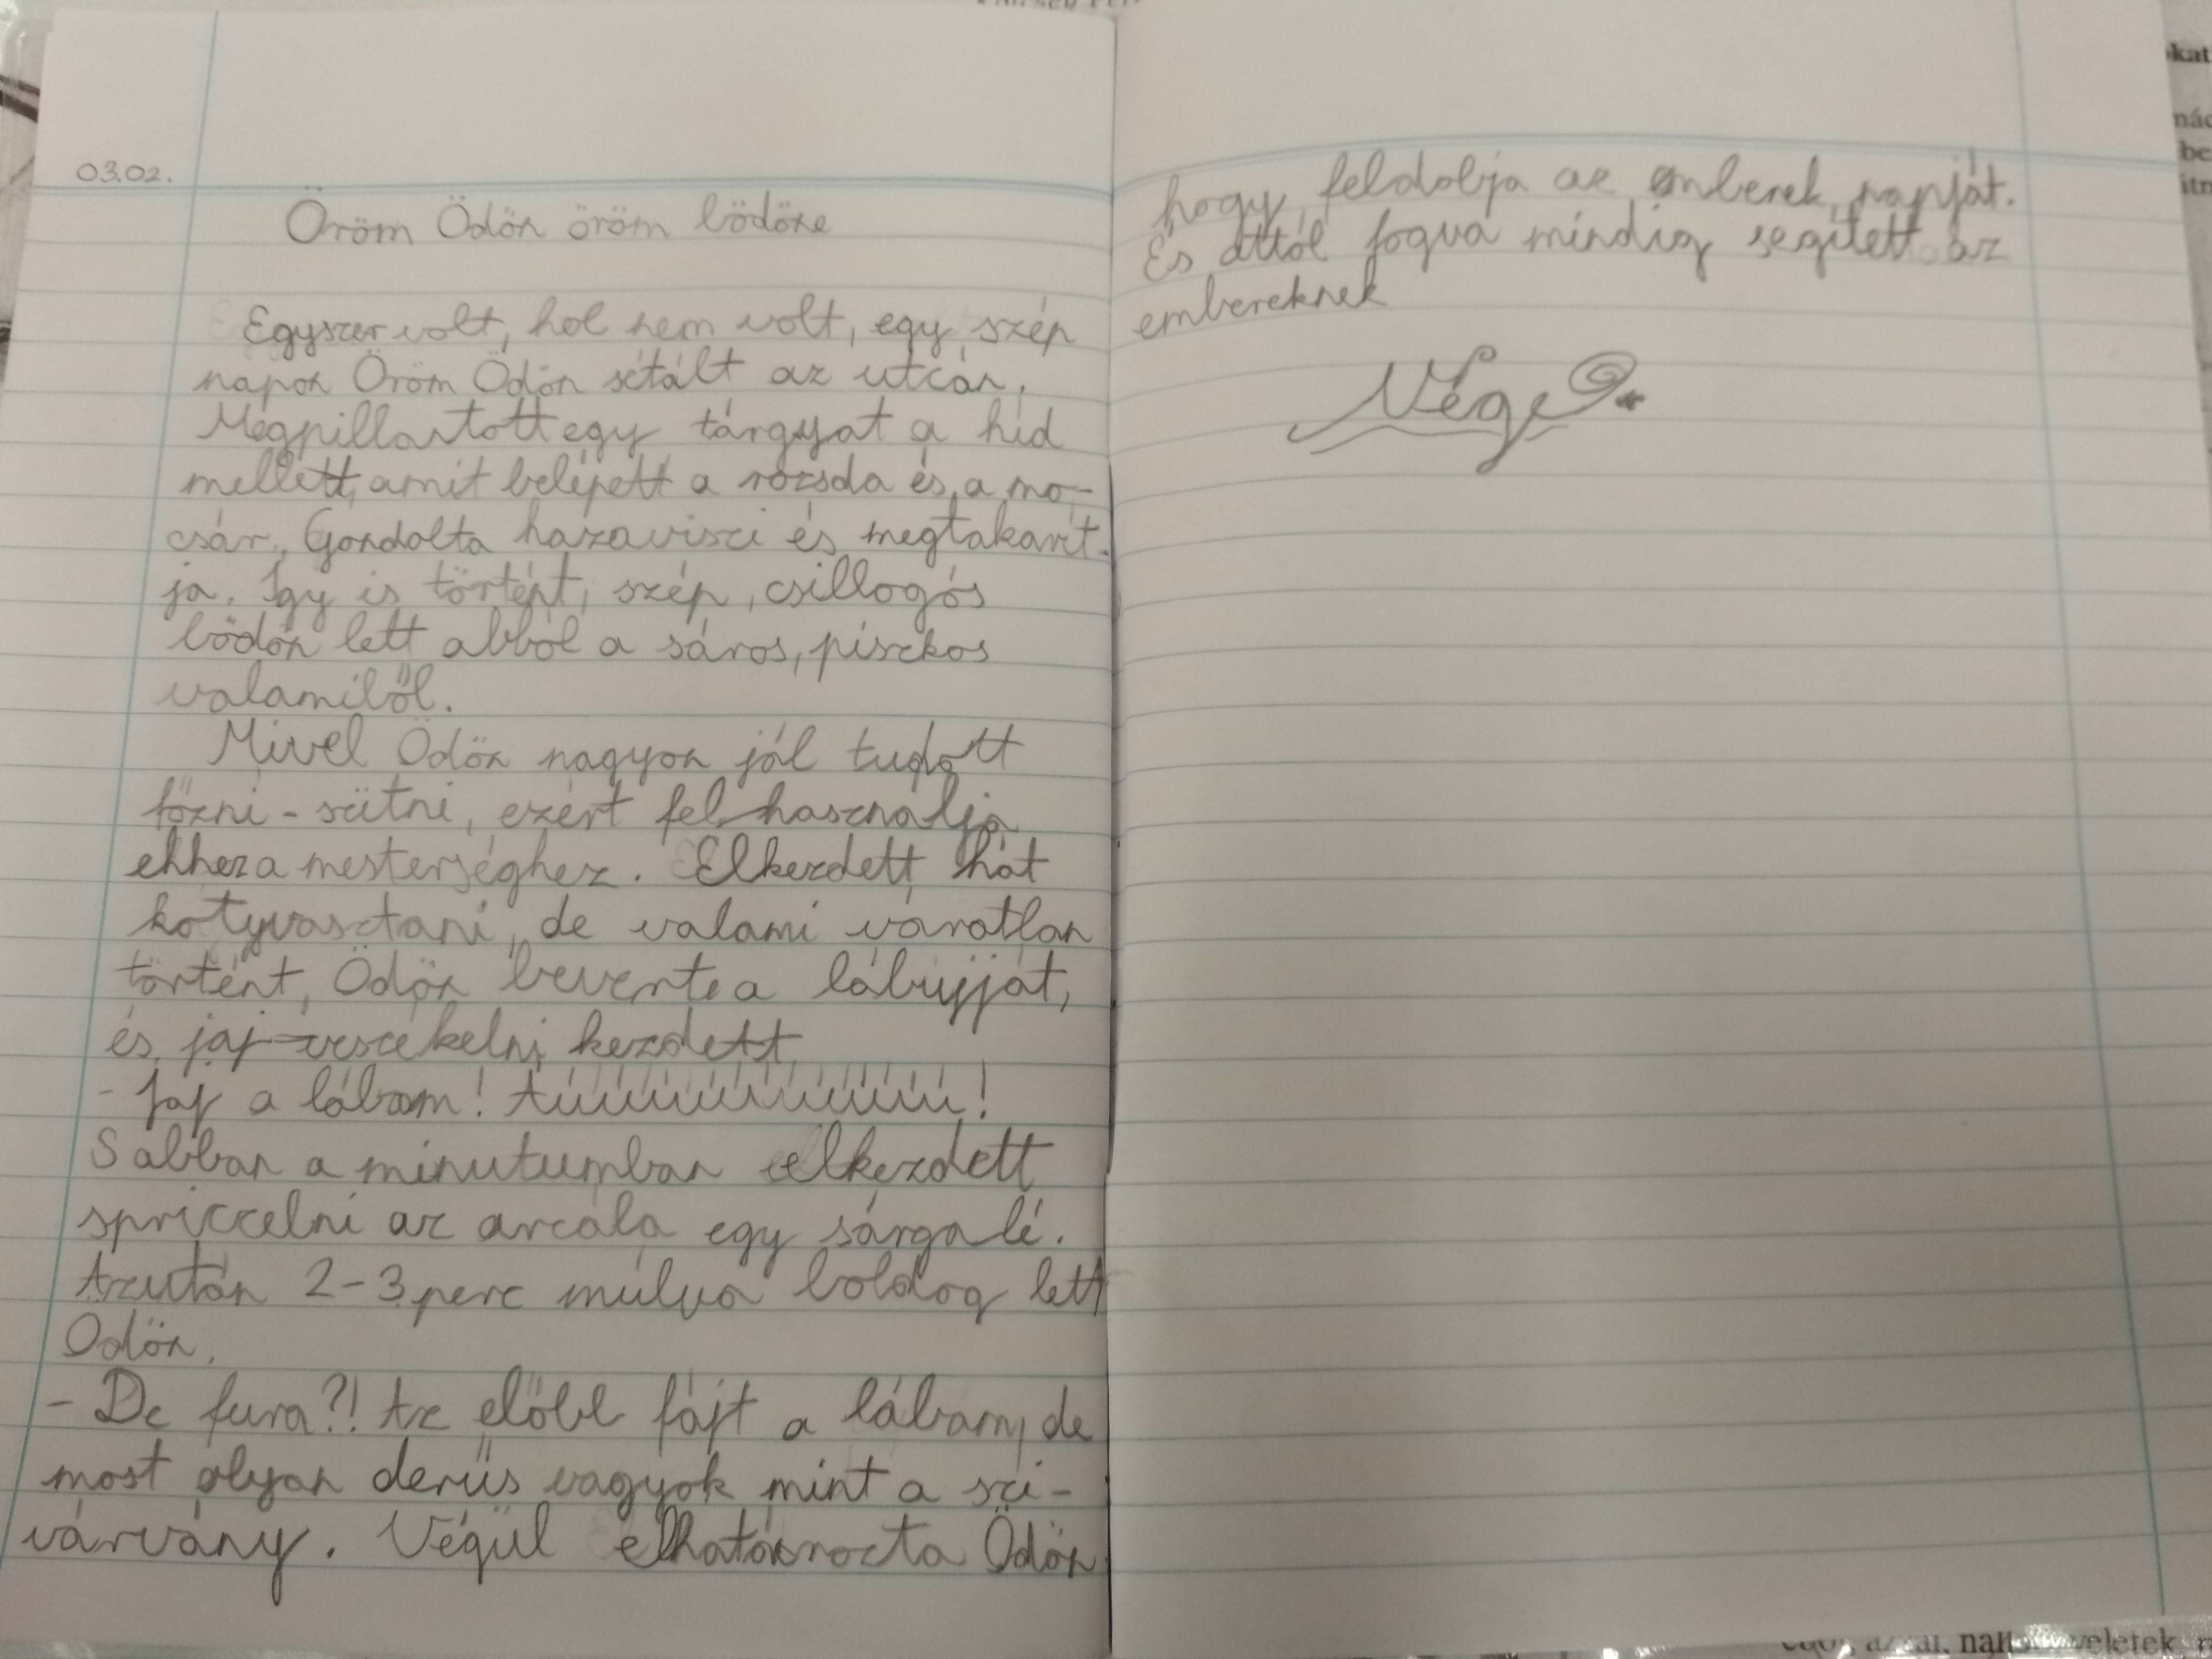 03.02.
Öröm Ödön öröm bödöne
Egyszer volt, hol nem volt, egy szép
napon Öröm Ödön sétált az utcán.
Megpillantott egy tárgyat a híd
mellett, amit belepett a rozsda és a mo-
csár. Gondolta hazaviszi és megtakarít-
ja. Így is történt, szép, csillogós
bödön lett abból a sáros, piszkos
valamiből.
Mivel Ödön nagyon jól tudott
főzni - sütni, ezért felhasználja
ehhez a mesterséghez. Elkezdett hát
kotyvasztani, de valami váratlan
történt, Ödön beverte a lábujját,
és jaj-veszékelni kezdett
- Jaj a lábam! Aúúúúúúúúúúúú!
S abban a minutumban elkezdett
spriccelni az arcála egy sárga lé.
Azután 2-3 perc múlva boldog lett
Ödön.
- De fura?! Az előbb fájt a lábam, de
most olyan derűs vagyok mint a szi-
várvány. Végül elhatározta Ödön
hogy feldobja az emberek napját.
És attól fogva mindig segített az
embereknek
Vége
okat
nác
be
ítm